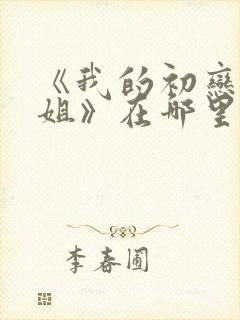 《我的初戀
姐》在哪里
李春圃